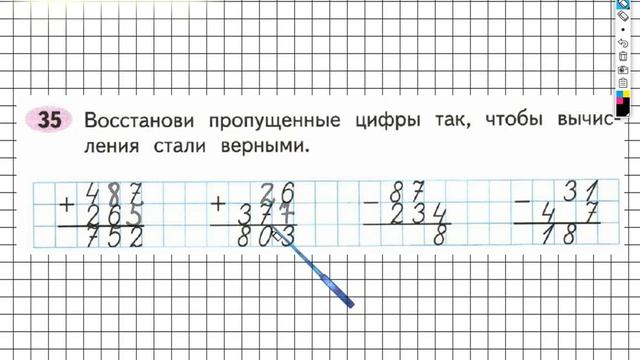 35 Восстанови пропущенные цифры так, чтобы вычис-
ления стали верными.
+ 487 + 26 − 87 − 31
265 377 234 4 7
752 803 8 18